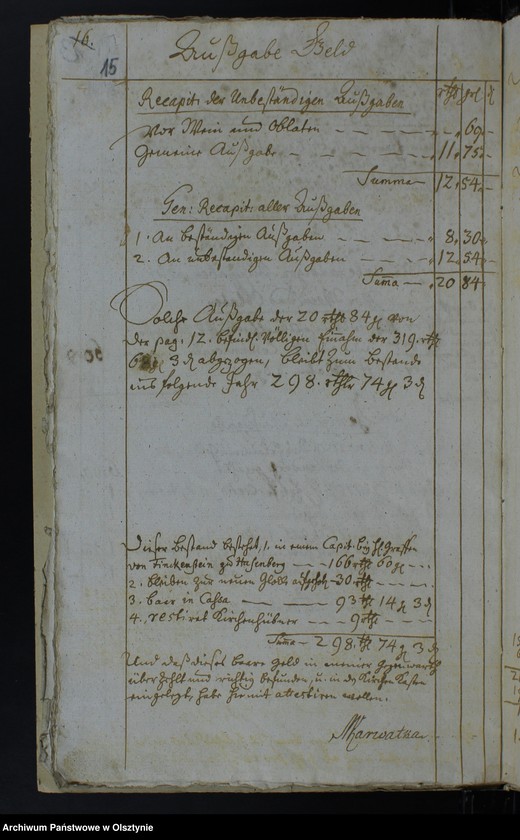 16.
15
Außgabe Geld
Recapit: der Unbeständigen Außgaben rthl grl ₰
Vor Wein und Oblaten — — — — 69. —
Gemeine Außgabe — — — — 11. 75. —
Summa — 12. 54. —
Gen: Recapit: aller Außgaben
1. An beständigen Außgaben — — — 8. 30. —
2. An unbeständigen Außgaben — — — 12. 54. —
Suma — 20 84
Solche Außgabe der 20 rthl 84 gl von
der pag. 12. befindl. Völligen Einahm der 319. rthl
3 ₰ abgezogen, bleibt zum Bestande
ins folgende Jahr 298. rthlr 74 gl 3 ₰
Dieser Bestand bestehet, 1. in einem Capit. bey H. Graffen
von Finckenstein zu Hasenberg — — 166 rthl 60 gl — . .
2. bleiben zur neuen Glock — 30 rthl — — — .
3. baar in Cassa — — — 93 rthl 14 gl 3 ₰
4. restiret Kirchenhübner — — 9 rthl — — —
Suma — 298. rthl 74 gl 3 ₰
Und daß dieses baare Geld in meiner Gegenwarth
überzehlt und richtig befunden, u. in den Kirchen Kasten
eingelegt, habe hiemit attestiren wollen.
Archiwum Państwowe w Olsztynie